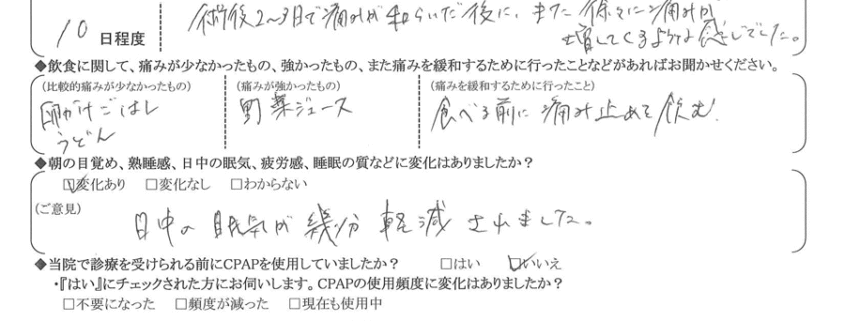 10 日程度
術後2〜3日で痛みが和らいだ後に、また徐々に痛みが
増してくるような感じでした。
◆飲食に関して、痛みが少なかったもの、強かったもの、また痛みを緩和するために行ったことなどがあればお聞かせください。
(比較的痛みが少なかったもの)
卵かけごはん
うどん
(痛みが強かったもの)
野菜ジュース
(痛みを緩和するために行ったこと)
食べる前に痛み止めを飲む。
◆朝の目覚め、熟睡感、日中の眠気、疲労感、睡眠の質などに変化はありましたか？
☑変化あり □変化なし □わからない
(ご意見)
日中の眠気が幾分軽減されました。
◆当院で診療を受けられる前にCPAPを使用していましたか？ □はい ☑いいえ
・『はい』にチェックされた方にお伺いします。CPAPの使用頻度に変化はありましたか？
□不要になった □頻度が減った □現在も使用中